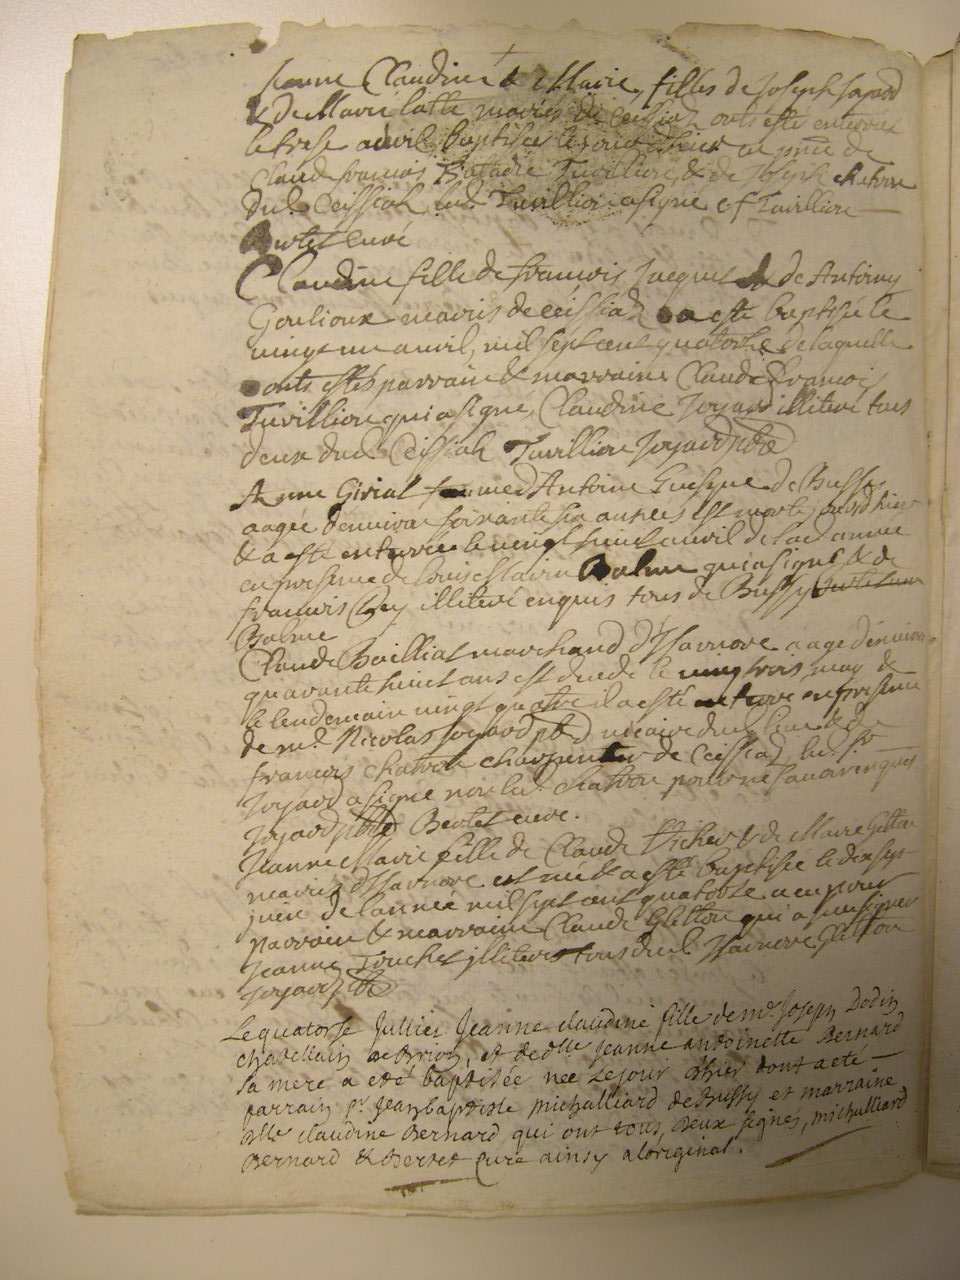 Jeanne Claudine & Marie, filles de Joseph
& de Marie mariés de Ceissiat onts esté enterrées
le trese avril baptisées le jour d'hier en pnce de
Claud françois Tuvillion, & de Joseph chatron
dud. Ceissiat, led. Tuvillion a signe cf Tuvillion
Bertet curé
Claudine fille de françois Jacquet & de Antoiny
Goulioux mariés de ceissiat a esté baptisée le
vingt un avril, mil sept cent quatorse de laquelle
onts estés parrain & marraine Claude françois
Tuvillion qui a signe, Claudine Joyard illiteré tous
deux dud. Ceissiat Tuvillion Joyard pbre
Anne Girial femme d'Antoine de Bussy
aagée denviron soixante six années est morte jourdhier
& a esté enterrée le vingt huict avril de lad. année
en presence de Louis Balme qui a signé & de
françois illiteré enquis tous de Bussy Bertet cure
Balme
Claude Bailliat marchand d'Isarnore aagé d'environ
quarante huict ans est decede le vingt trois may &
le lendemain vingt quatre il a esté enterre en presence
de mre Nicolas Joyard pbre vicaire dud. lieu & de
françois chatron charpentier de Ceissiat led. sr
Joyard a signe non led. chatron pour ne savoir enquis
Joyard pbre Bertet cure.
Jeanne Marie fille de Claude & de Marie Gletton
mariés d'Isarnore est née & a esté baptisée le dix sept
juin de l'année mil sept cent quatorze a eu pour
parrain & marraine Claude Gletton qui a signer
Jeanne Touchet illiteré tous dud. Isarnore Gletton
Joyard pbre
Le quatorse Jullier Jeanne claudine fille de mre Joseph Dodin
chatellain de Brion, et de dlle Jeanne antoinette Bernard
sa mere a eté baptisée nee le jour d'hier dont a eté
parrain sr Jean baptiste michalliard de Bussy et marraine
dlle claudine Bernard qui ont tous deux signés, michalliard
Bernard & Bertet curé ainsy a loriginal.